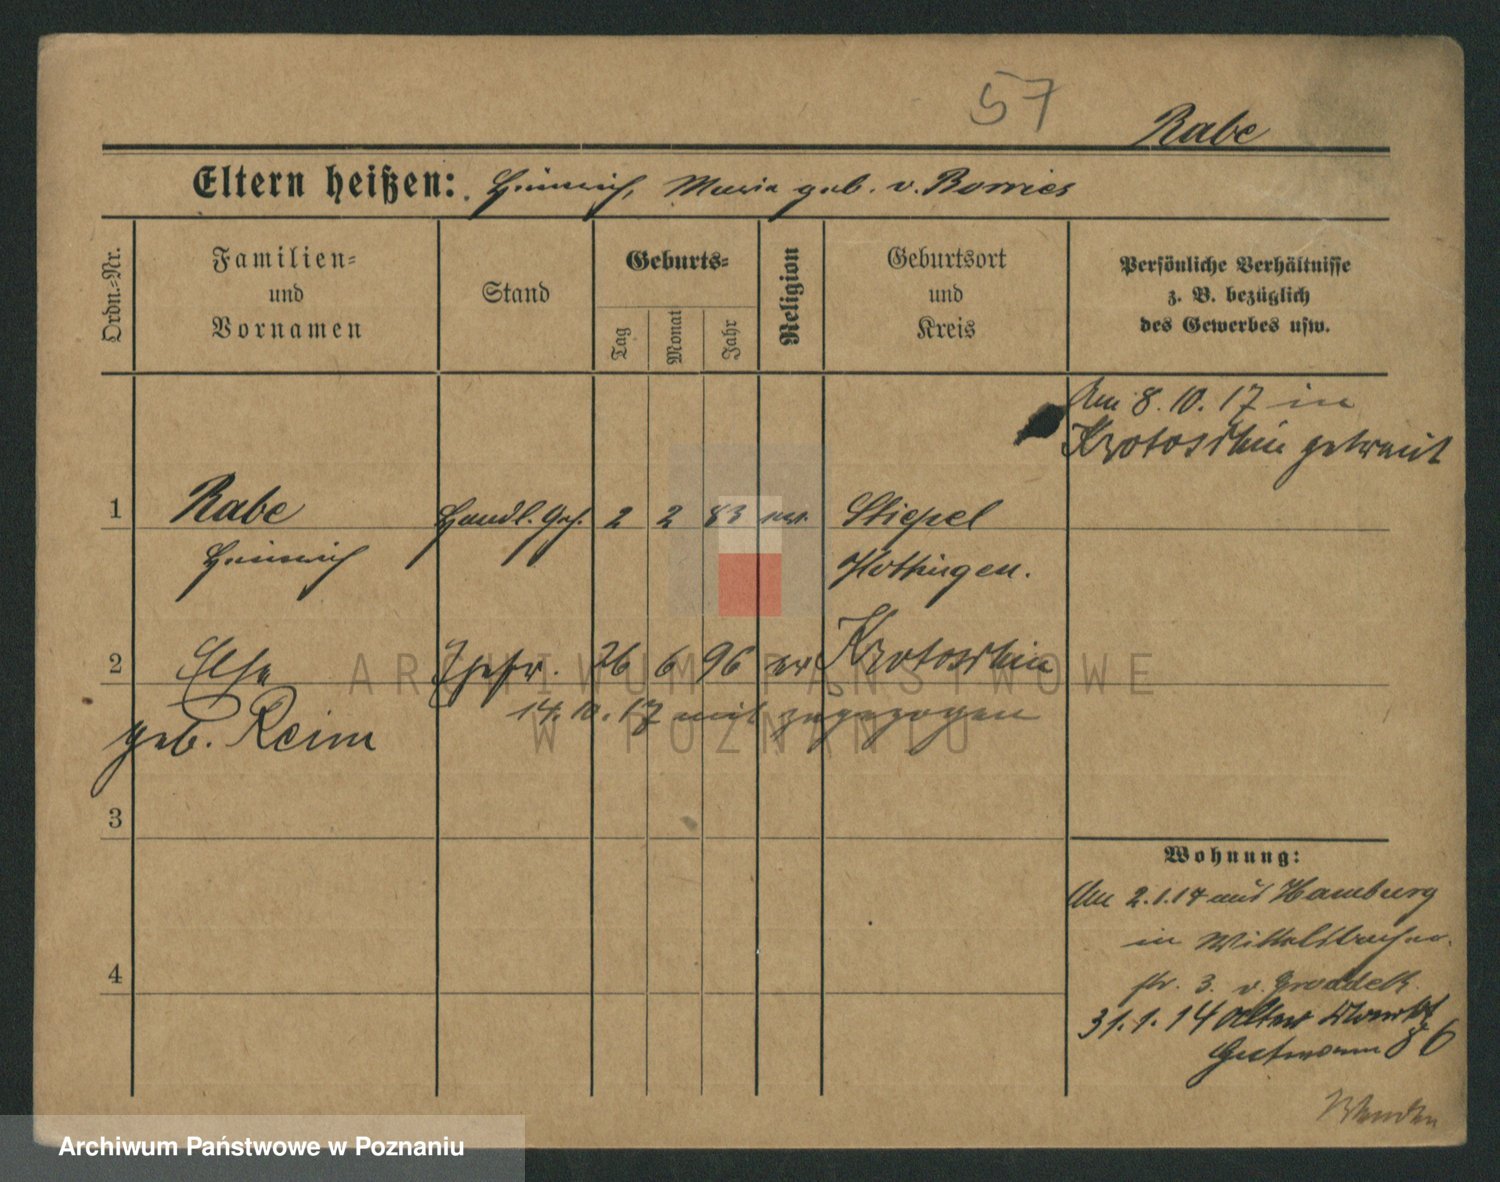 57
Rabe
Eltern heißen: Heinrich, Maria geb. v. Borries
Ordn.-Nr.
Familien-
und
Vornamen
Stand
Geburts-
Tag
Monat
Jahr
Religion
Geburtsort
und
Kreis
Persönliche Verhältnisse
z. B. bezüglich
des Gewerbes usw.
Am 8.10.17 in
Krotoschin getraut
1 Rabe Handl. Geh. 2 2 83 ev. Stiepel
Heinrich Hattingen.
2 Else Ehefr. 26 6 96 ev Krotoschin
14.10.17 mit zugezogen
geb. Reim
3
4
Wohnung:
Am 2.1.14 aus Hamburg
in Wittelsbacher-
str. 3. v. Groddeck.
31.1.14 Alter Markt
Gutmann 86
Wenden
ARCHIWUM PAŃSTWOWE
W POZNANIU
Archiwum Państwowe w Poznaniu